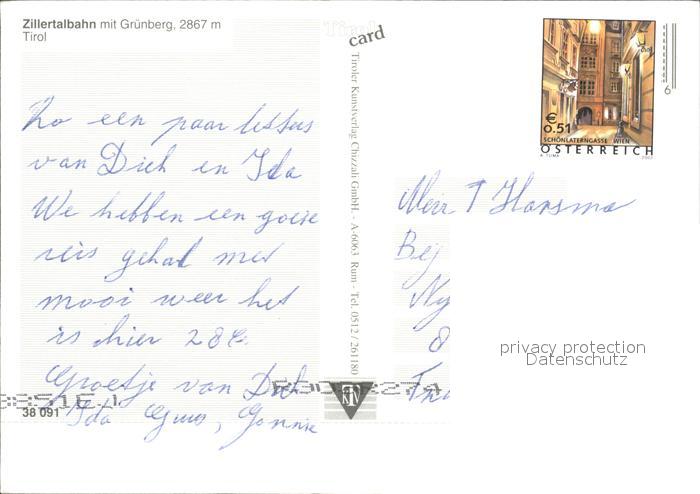 Zillertalbahn mit Grünberg, 2867 m
Tirol
Tirol
card
Zo een paar lettus
van Dich en Ida
We hebben een goeie
reis gehad met
mooi weer het
is hier 28 C.
Groetje van Dich
Ida Guus, Gonnie
38 091
Tiroler Kunstverlag Chizzali GmbH. - A-6063 Rum - Tel. 0512/261180
KTV
€
0.51
SCHÖNLATERNGASSE WIEN
ÖSTERREICH
A. TUMA 2002
6
T Hansma
Bij
Ny
8
privacy protection
Datenschutz